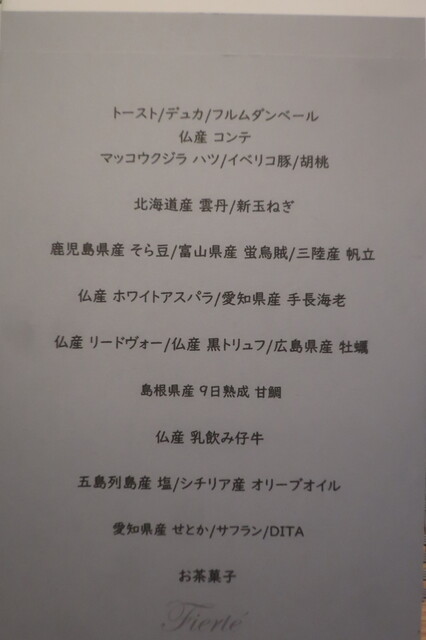 トースト/デュカ/フルムダンベール
仏産 コンテ
マッコウクジラ ハツ/イベリコ豚/胡桃
北海道産 雲丹/新玉ねぎ
鹿児島県産 そら豆/富山県産 蛍烏賊/三陸産 帆立
仏産 ホワイトアスパラ/愛知県産 手長海老
仏産 リードヴォー/仏産 黒トリュフ/広島県産 牡蠣
島根県産 9日熟成 甘鯛
仏産 乳飲み仔牛
五島列島産 塩/シチリア産 オリーブオイル
愛知県産 せとか/サフラン/DITA
お茶菓子
Fierté